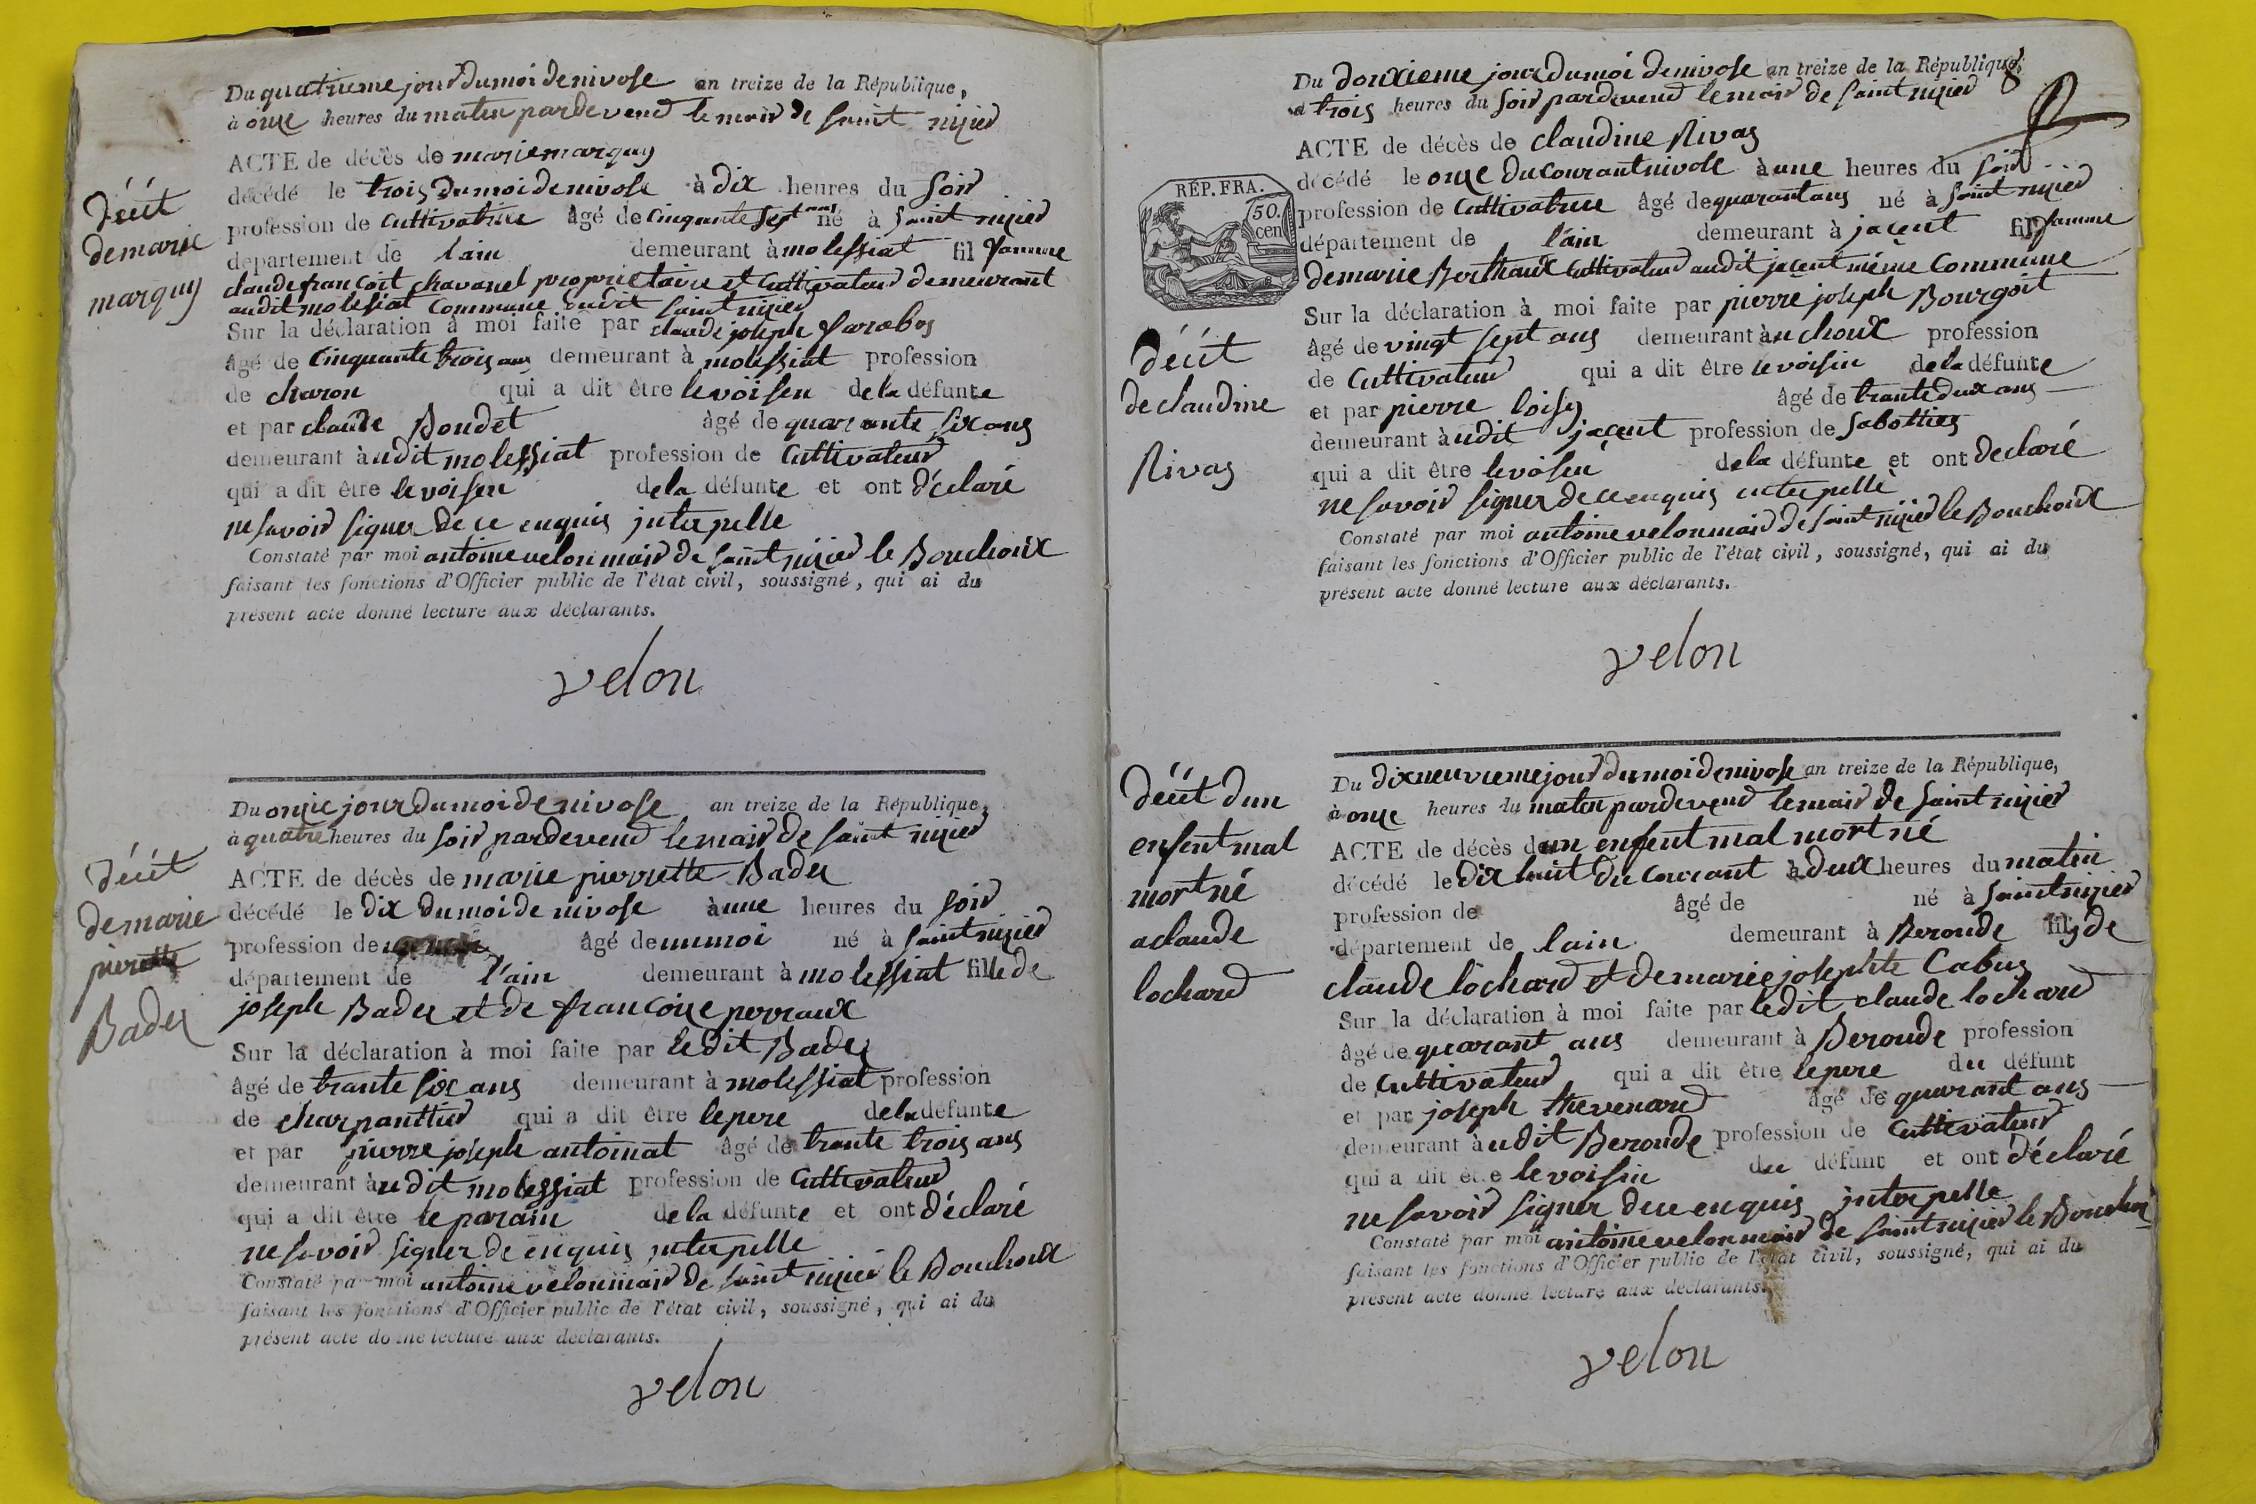 Du quatrieme jour du moi de nivose an treize de la République,
à onze heures du maten pardevend le maird de saint nizied
ACTE de décès de marie marquy
décédé le trois du moi de nivose à dix heures du soird
profession de cultivatrice âgé de cinquante sept ans né à saint nizied
département de lain demeurant à molessiat fil famme
claude francoit chavanel proprietaire et cultivateud demeurant
audit molesiat commune dudit saint nizied
Sur la déclaration à moi faite par claude joseph
âgé de cinquante trois ans demeurant à molessiat profession
de charon qui a dit être le voisen de la défunte
et par claude Boudet âgé de quarante six ans
demeurant àudit molessiat profession de cultivateud
qui a dit être le voisen de la défunte et ont déclaré
ne savoird signer de ce enquis jnterpelle
Constaté par moi antoine velon maird de saint nizied le Bouchoux
faisant les fonctions d'Officier public de l'état civil, soussigné, qui ai du
présent acte donné lecture aux déclarants.
velon
décét
de marie
marquy
Du onzie jour du moi de nivose an treize de la République,
à quatre heures du soird pardevend le maird de saint nizied
ACTE de décès de marie pierrette Badez
décédé le dix du moi de nivose à une heures du soird
profession de âgé de un moi né à saint nizied
département de l'ain demeurant à molessiat fille de
joseph Badez et de francoise perraux
Sur la déclaration à moi faite par ledit Badez
âgé de trante six ans demeurant à molessiat profession
de charpanttied qui a dit être le pere de la défunte
et par pierre joseph antoinat âgé de trante trois ans
demeurant àudit molessiat profession de cultivateud
qui a dit être le parain de la défunte et ont déclaré
ne savoird signer de enquis jnterpelle
Constaté par moi antoine velon maird de saint nizied le Bouchoux
faisant les fonctions d'Officier public de l'état civil, soussigné, qui ai du
présent acte donné lecture aux déclarants.
velon
décét
de marie
pierette
Badez
8
Du douxieme jour du moi de nivose an treize de la République,
à trois heures du soird pardevend le maird de saint nizied
ACTE de décès de claudine Rivas
décédé le onze du courant nivose à une heures du soird
profession de cultivatrice âgé de quarant ans né à saint nizied
département de l'ain demeurant à jacent fil famme
de marie Berthaux cultivateud audit jacent même commune
Sur la déclaration à moi faite par pierre joseph Bourgoit
âgé de vingt sept ans demeurant àu choux profession
de cultivateud qui a dit être le voisin de la défunte
et par pierre loisy âgé de trante deux ans
demeurant àudit jacent profession de sabottiez
qui a dit être le voisin de la défunte et ont declaré
ne savoird signer de ce enquis jnterpellè
Constaté par moi antoine velon maird de saint nizied le Bouchoux
faisant les fonctions d'Officier public de l'état civil, soussigné, qui ai du
présent acte donné lecture aux déclarants.
velon
RÉP. FRA.
50.
cen
décét
de claudine
Rivas
Du dix neuvieme jourd du moi de nivose an treize de la République,
à onze heures du maten pardevend le maird de saint nizied
ACTE de décès de un enfent mal mort né
décédé le dix huit du courant à deux heures du matin
profession de âgé de né à saint nizied
département de lain demeurant à Beronde fils de
claude lochard et de marie josephte Cabus
Sur la déclaration à moi faite par ledit claude lochard
âgé de quarant ans demeurant à Beronde profession
de cultivateud qui a dit être le pere du défunt
et par joseph thevenard âgé de quarant ans
demeurant àudit Beronde profession de cultivateud
qui a dit être le voisin du défunt et ont déclaré
ne savoird signer de ce enquis jnterpelle
Constaté par moi antoine velon maird de saint nizied le Bouchoux
faisant les fonctions d'Officier public de l'état civil, soussigné, qui ai du
présent acte donné lecture aux déclarants.
velon
décét dun
enfent mal
mort né
a claude
lochard